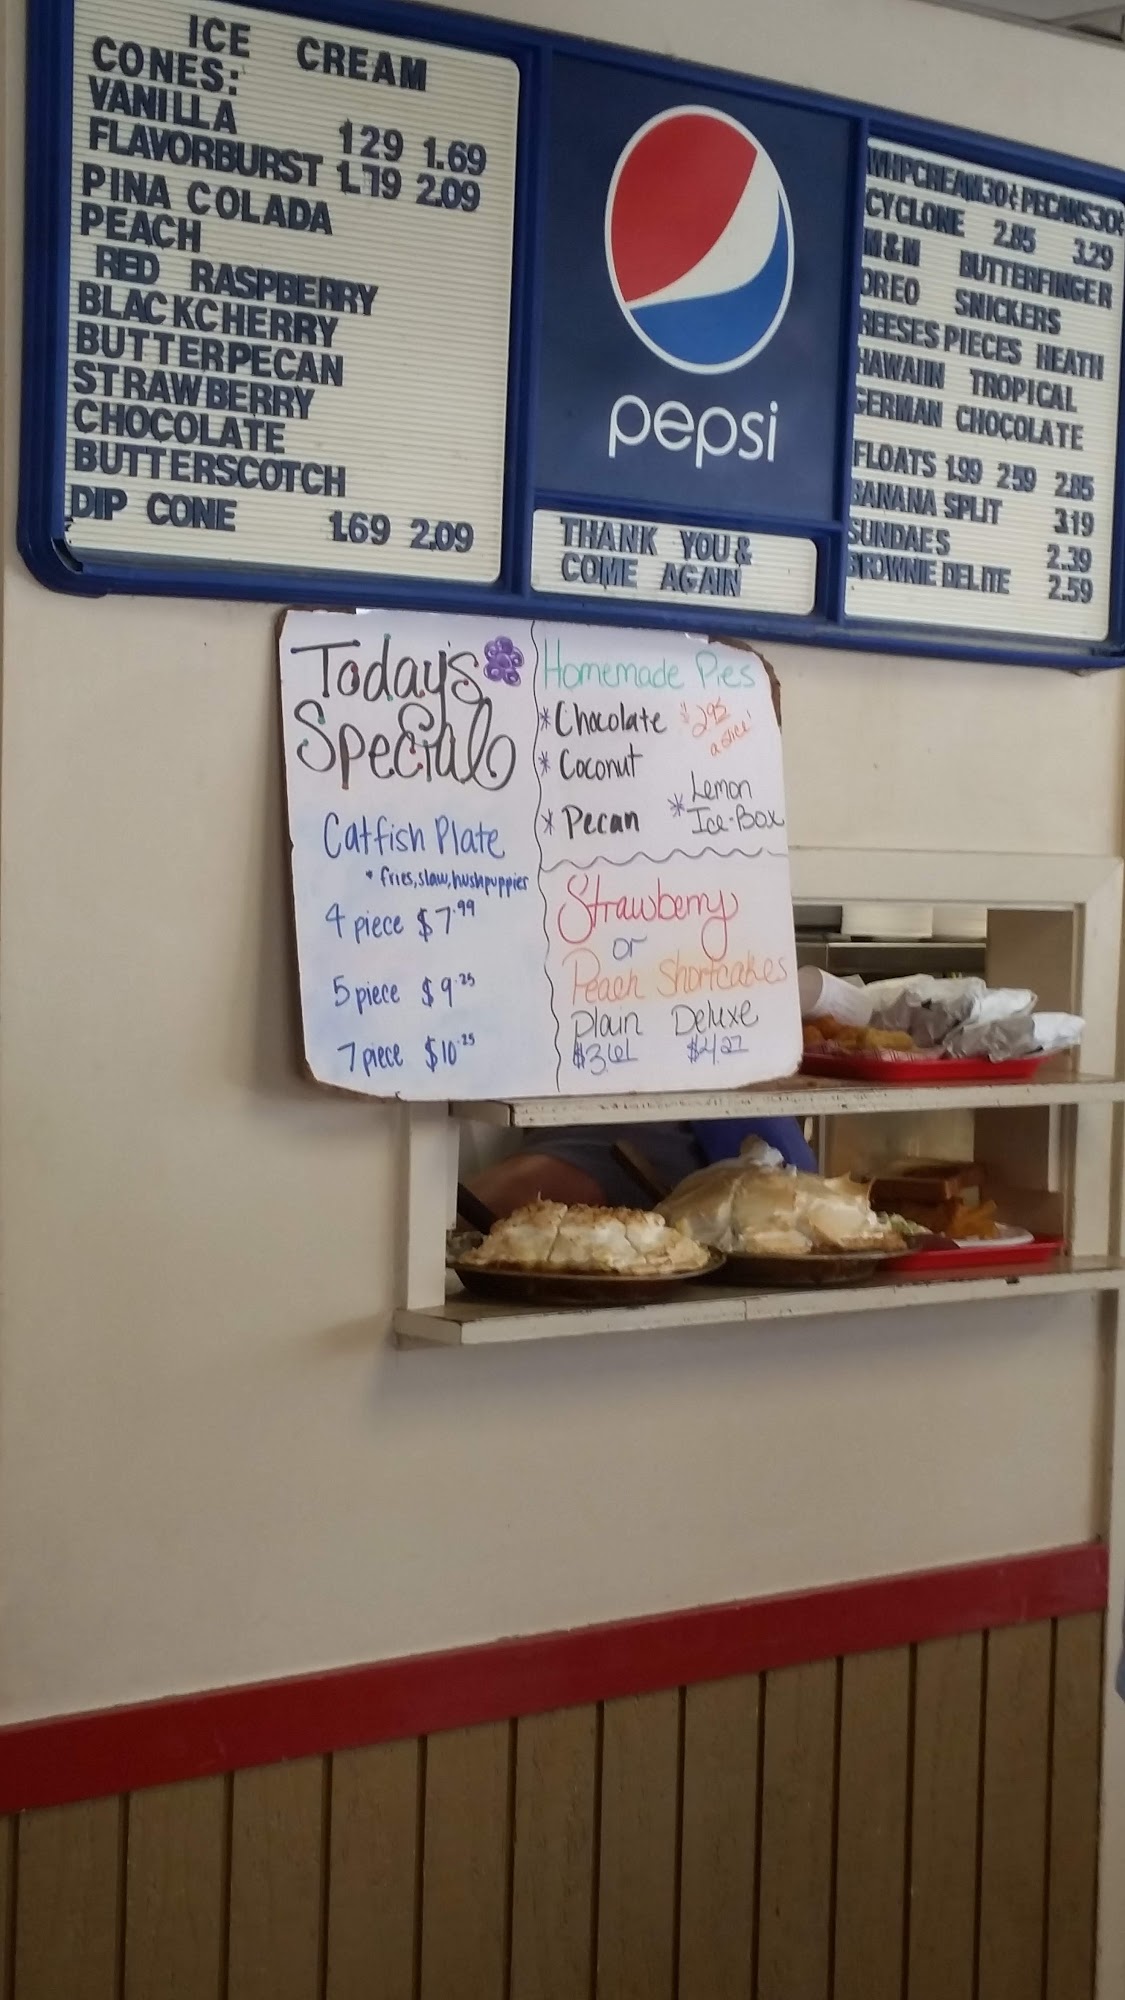 ICE CREAM
CONES:
VANILLA 129 1.69
FLAVORBURST 1.79 2.09
PINA COLADA
PEACH
RED RASPBERRY
BLACKCHERRY
BUTTERPECAN
STRAWBERRY
CHOCOLATE
BUTTERSCOTCH
DIP CONE 1.69 2.09
pepsi
THANK YOU &
COME AGAIN
WHPCREAM30¢ PECANS30¢
CYCLONE 2.85 3.29
M&M BUTTERFINGER
OREO SNICKERS
REESES PIECES HEATH
HAWAIIN TROPICAL
GERMAN CHOCOLATE
FLOATS 1.99 2.59 2.85
BANANA SPLIT 3.19
SUNDAES 2.39
BROWNIE DELITE 2.59
Today's
Special
Catfish Plate
* fries, slaw, hushpuppies
4 piece $7.99
5 piece $9.25
7 piece $10.25
Homemade Pies
* Chocolate $2.95
a slice!
* Coconut
* Pecan * Lemon
Ice-Box
Strawberry
or
Peach Shortcakes
Plain Deluxe
$3.61 $4.27